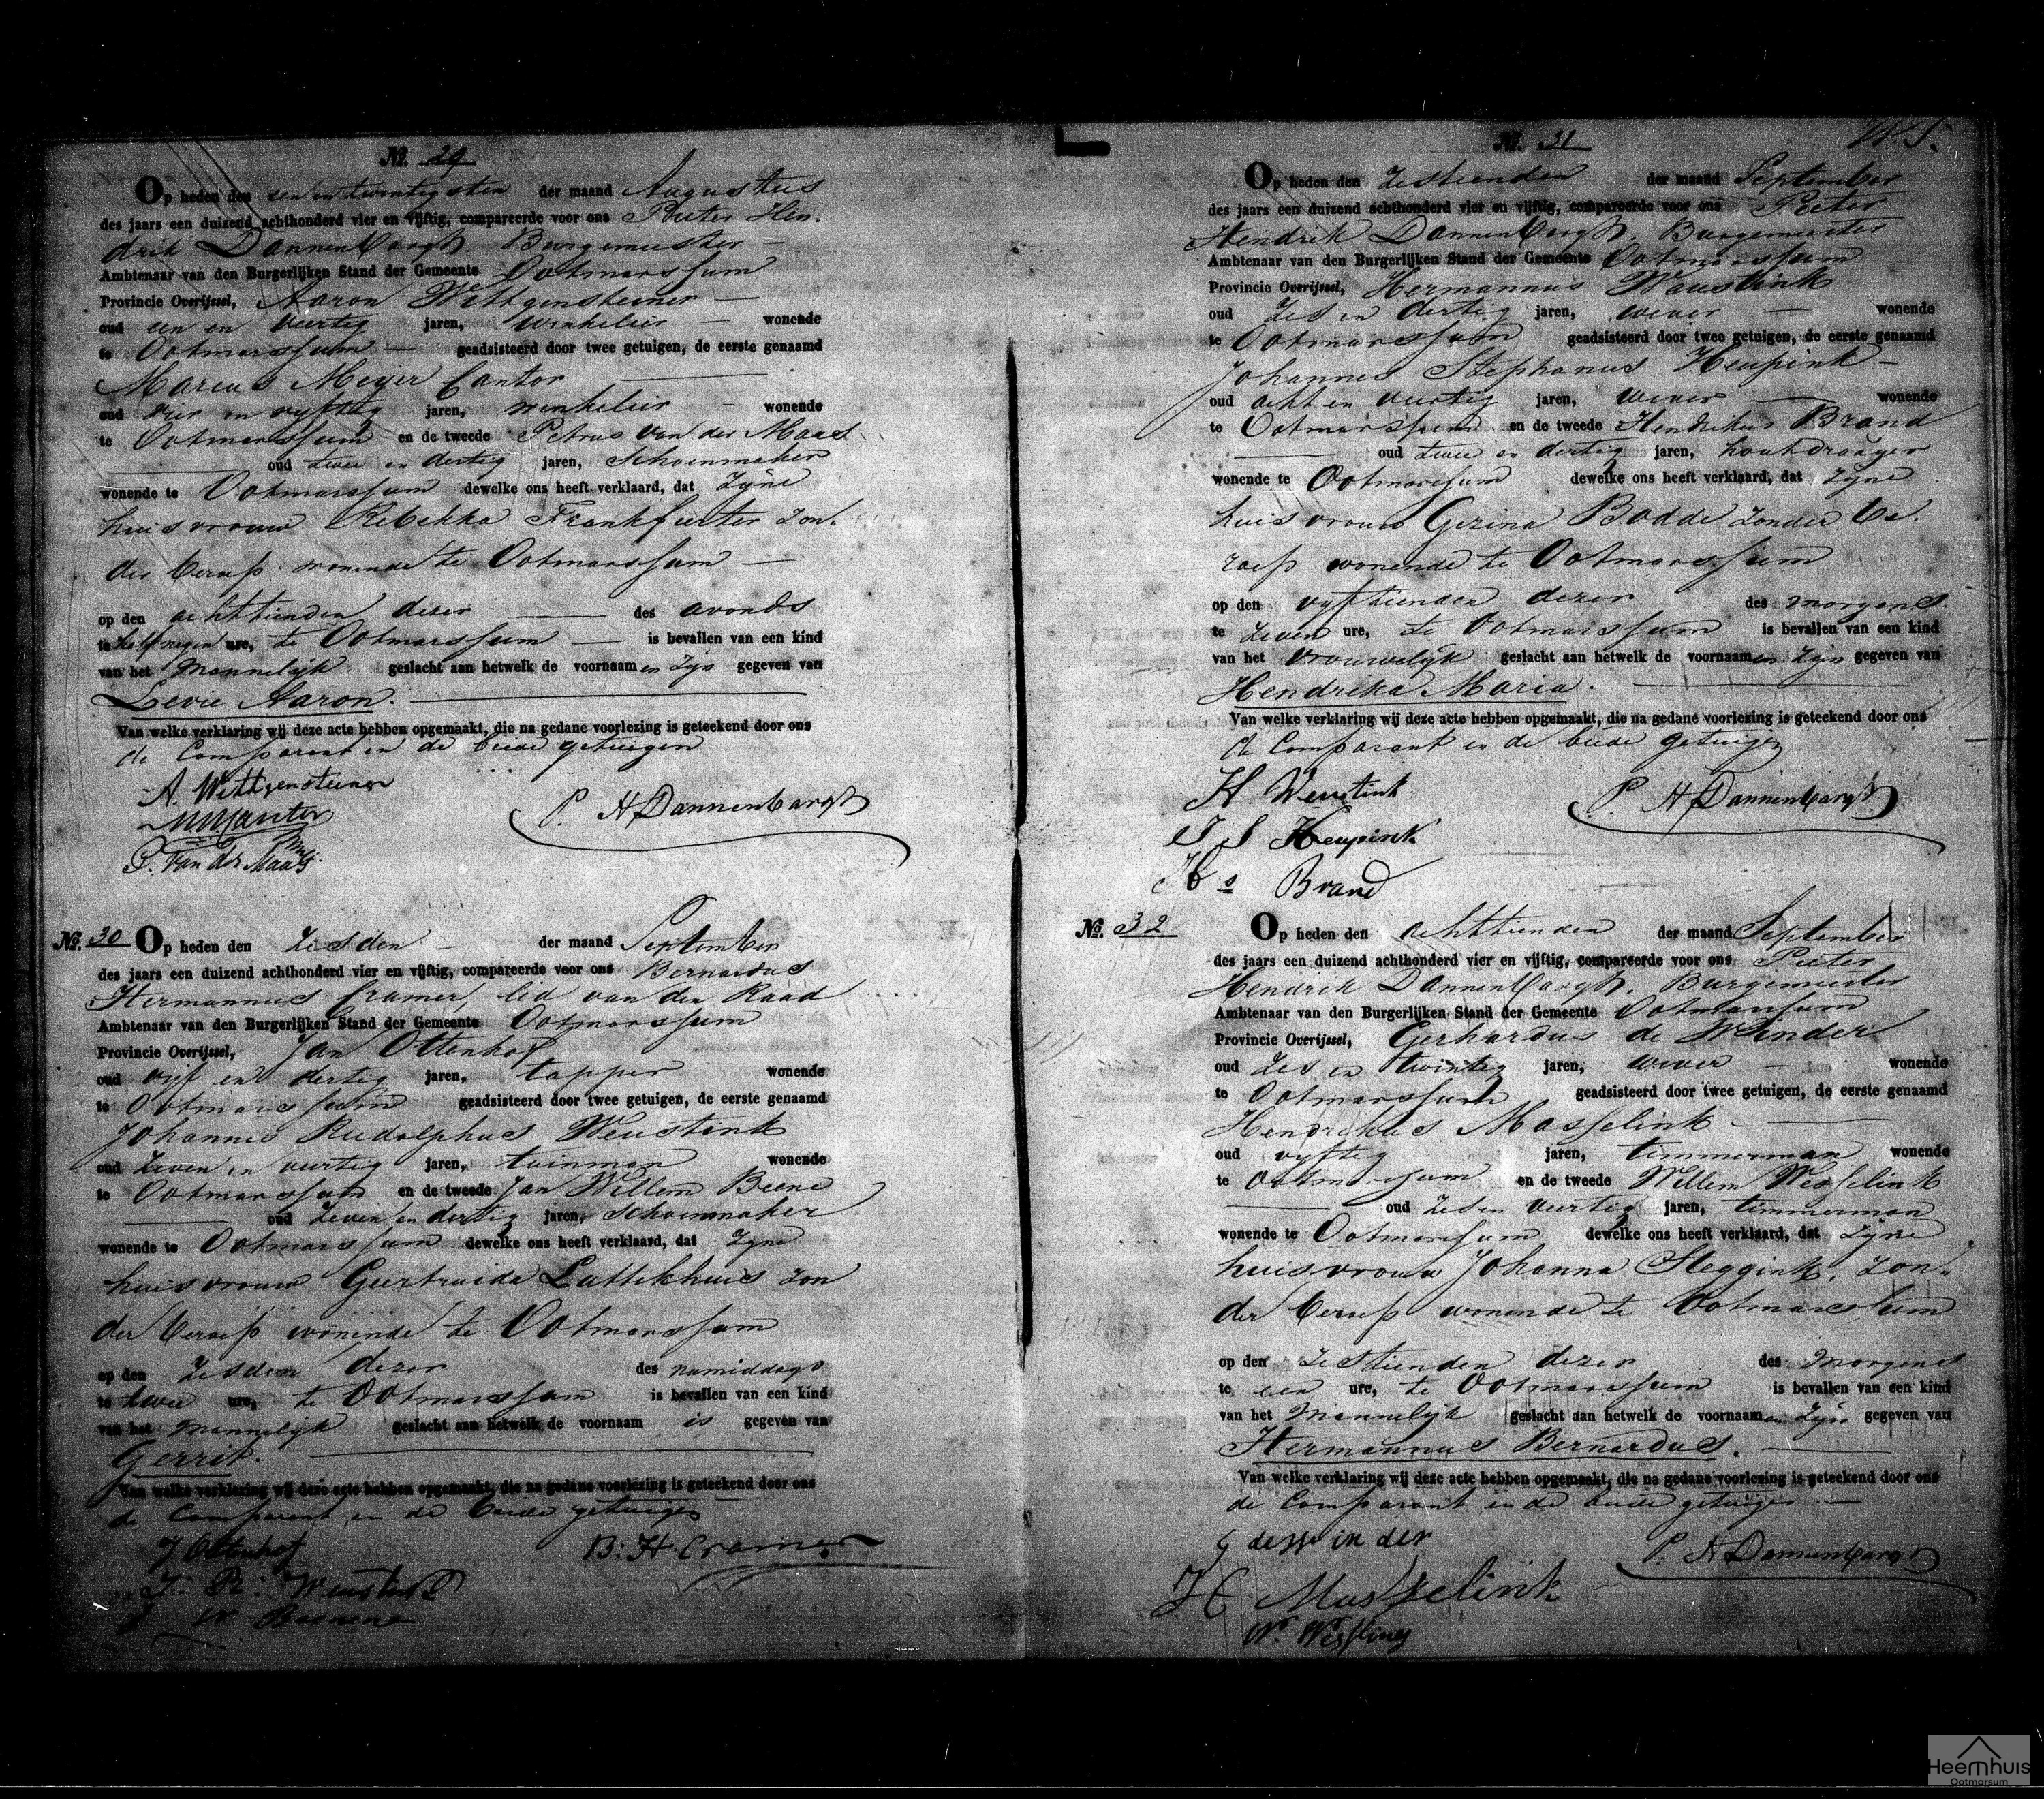 No. 29
Op heden den een en twintigsten der maand Augustus
des jaars een duizend achthonderd vier en vijftig, compareerde voor ons Pieter Hen-
drik Dannenbargh Burgemeester
Ambtenaar van den Burgerlijken Stand der Gemeente Ootmarssum
Provincie Overijssel, Aaron Wittgensteiner
oud een en veertig jaren, winkelier wonende
te Ootmarssum geadsisteerd door twee getuigen, de eerste genaamd
Marcus Meijer Cantor
oud vier en vyftig jaren, winkelier wonende
te Ootmarssum en de tweede Petrus van der Maas
oud twee en dertig jaren, Schoenmaker
wonende te Ootmarssum dewelke ons heeft verklaard, dat zyne
huisvrouw Rebekka Frankfurter zon-
der beroep wonende te Ootmarssum
op den achttienden dezer des avonds
te half negen ure, te Ootmarssum is bevallen van een kind
van het mannelyk geslacht aan hetwelk de voornaamen zyn gegeven van
Levie Aaron.
Van welke verklaring wij deze acte hebben opgemaakt, die na gedane voorlezing is geteekend door ons
de Comparant en de beide getuigen
A. Wittgensteiner
MMCantor
P. H Dannenbargh
P. van der Maas
No. 30 Op heden den zesden der maand September
des jaars een duizend achthonderd vier en vijftig, compareerde voor ons Bernardus
Hermannus Cramer, lid van den Raad
Ambtenaar van den Burgerlijken Stand der Gemeente Ootmarssum
Provincie Overijssel, Jan Ottenhof
oud vijf en dertig jaren, tapper wonende
te Ootmarssum geadsisteerd door twee getuigen, de eerste genaamd
Johannes Rudolphus Weustink
oud zeven en veertig jaren, tuinman wonende
te Ootmarssum en de tweede Jan Willem Beene
oud zeven en dertig jaren, Schoenmaker
wonende te Ootmarssum dewelke ons heeft verklaard, dat zyne
huisvrouw Geertruida Luttekhuis zon
der beroep wonende te Ootmarssum
op den zesden dezer des namiddags
te twee ure, te Ootmarssum is bevallen van een kind
van het mannelyk geslacht aan hetwelk de voornaam is gegeven van
Gerrit.
Van welke verklaring wij deze acte hebben opgemaakt, die na gedane voorlezing is geteekend door ons
de Comparant en de beide getuigen
J Ottenhof
B: H: Cramer
J: R: Weustink
J W
No. 31
Op heden den zestienden der maand September
des jaars een duizend achthonderd vier en vijftig, compareerde voor ons Pieter
Hendrik Dannenbargh. Burgemeester
Ambtenaar van den Burgerlijken Stand der Gemeente Ootmarssum
Provincie Overijssel, Hermannus Weustink
oud zes en dertig jaren, wever wonende
te Ootmarssum geadsisteerd door twee getuigen, de eerste genaamd
Johannes Stephanus Heupink
oud acht en veertig jaren, wever wonende
te Ootmarssum en de tweede Hendrikus Brand
oud twee en dertig jaren, houtdraager
wonende te Ootmarssum dewelke ons heeft verklaard, dat zyne
huisvrouw Gezina Bodde zonder be-
roep wonende te Ootmarssum
op den vyftienden dezer des morgens
te zeven ure, te Ootmarssum is bevallen van een kind
van het vrouwelyk geslacht aan hetwelk de voornaamen zyn gegeven van
Hendrika Maria.
Van welke verklaring wij deze acte hebben opgemaakt, die na gedane voorlezing is geteekend door ons
de Comparant en de beide getuigen
H Weustink
P. H Dannenbargh
J S Heupink
Hs Brand
No. 32 Op heden den achttienden der maand September
des jaars een duizend achthonderd vier en vijftig, compareerde voor ons Pieter
Hendrik Dannenbargh. Burgemeester
Ambtenaar van den Burgerlijken Stand der Gemeente Ootmarssum
Provincie Overijssel, Gerhardus de Winder
oud zes en twintig jaren, wever wonende
te Ootmarssum geadsisteerd door twee getuigen, de eerste genaamd
Hendrikus Masselink
oud vyftig jaren, timmerman wonende
te Ootmarssum en de tweede Willem Wesselink
oud zes en veertig jaren, timmerman
wonende te Ootmarssum dewelke ons heeft verklaard, dat zyne
huisvrouw Johanna Steggink, zon-
der beroep wonende te Ootmarssum
op den zestienden dezer des morgens
te een ure, te Ootmarssum is bevallen van een kind
van het mannelyk geslacht aan hetwelk de voornaamen zyn gegeven van
Hermannus Bernardus.
Van welke verklaring wij deze acte hebben opgemaakt, die na gedane voorlezing is geteekend door ons
de Comparant en de beide getuigen
P. H Dannenbargh
H Masselink
W. Wesseling
Heemhuis
Ootmarsum